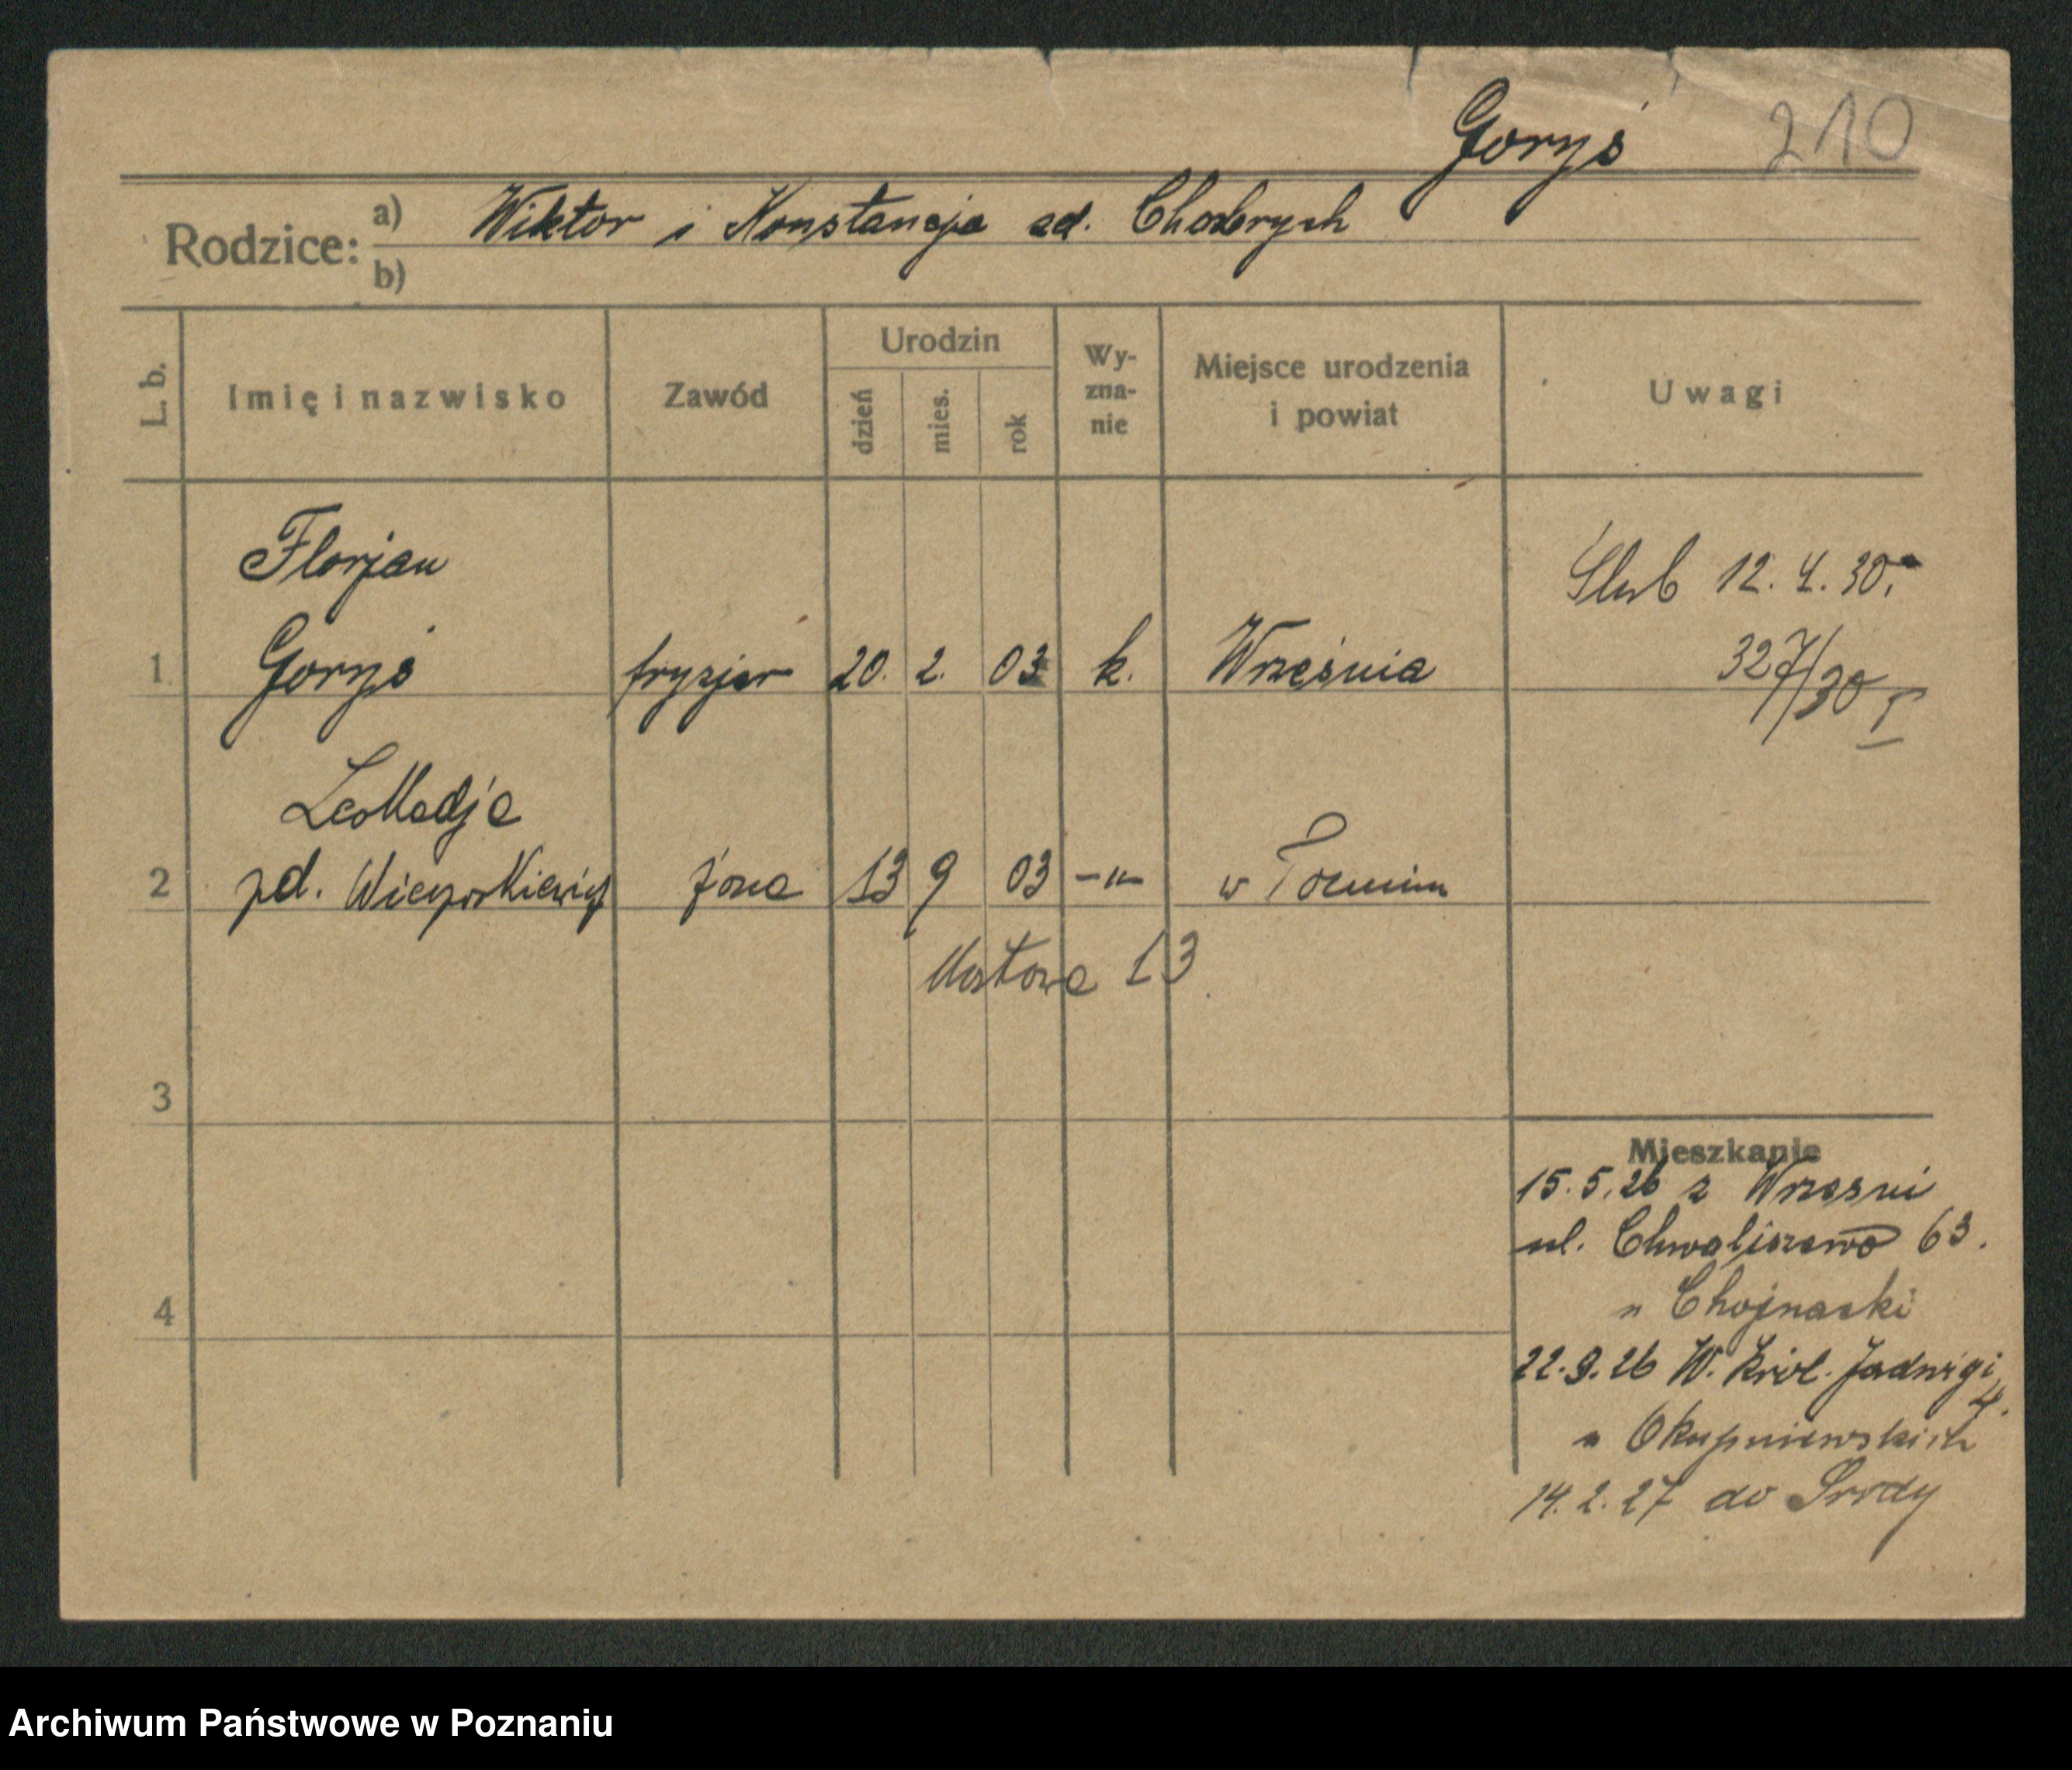 Goryś 210
Rodzice: a) Wiktor i Konstancja zd. Chobrych
b)
L. b. Imię i nazwisko Zawód Urodzin dzień mies. rok Wyznanie Miejsce urodzenia i powiat Uwagi
Florjan Ślub 12. 4. 30.
1 Goryś fryzjer 20. 2. 03 k. Września 327/30 I
Leokadja
2 zd. Wieczorkiewicz żona 13 9 03 -"- w Toruniu
Mostowa 13
3
Mieszkanie
15.5.26 z Wrześni
ul. Chwaliszewo 63.
4 " Chojnacki
22.9.26 W. Król. Jadwigi 4.
" Okupniewskich
14.2.27 do Środy
Archiwum Państwowe w Poznaniu